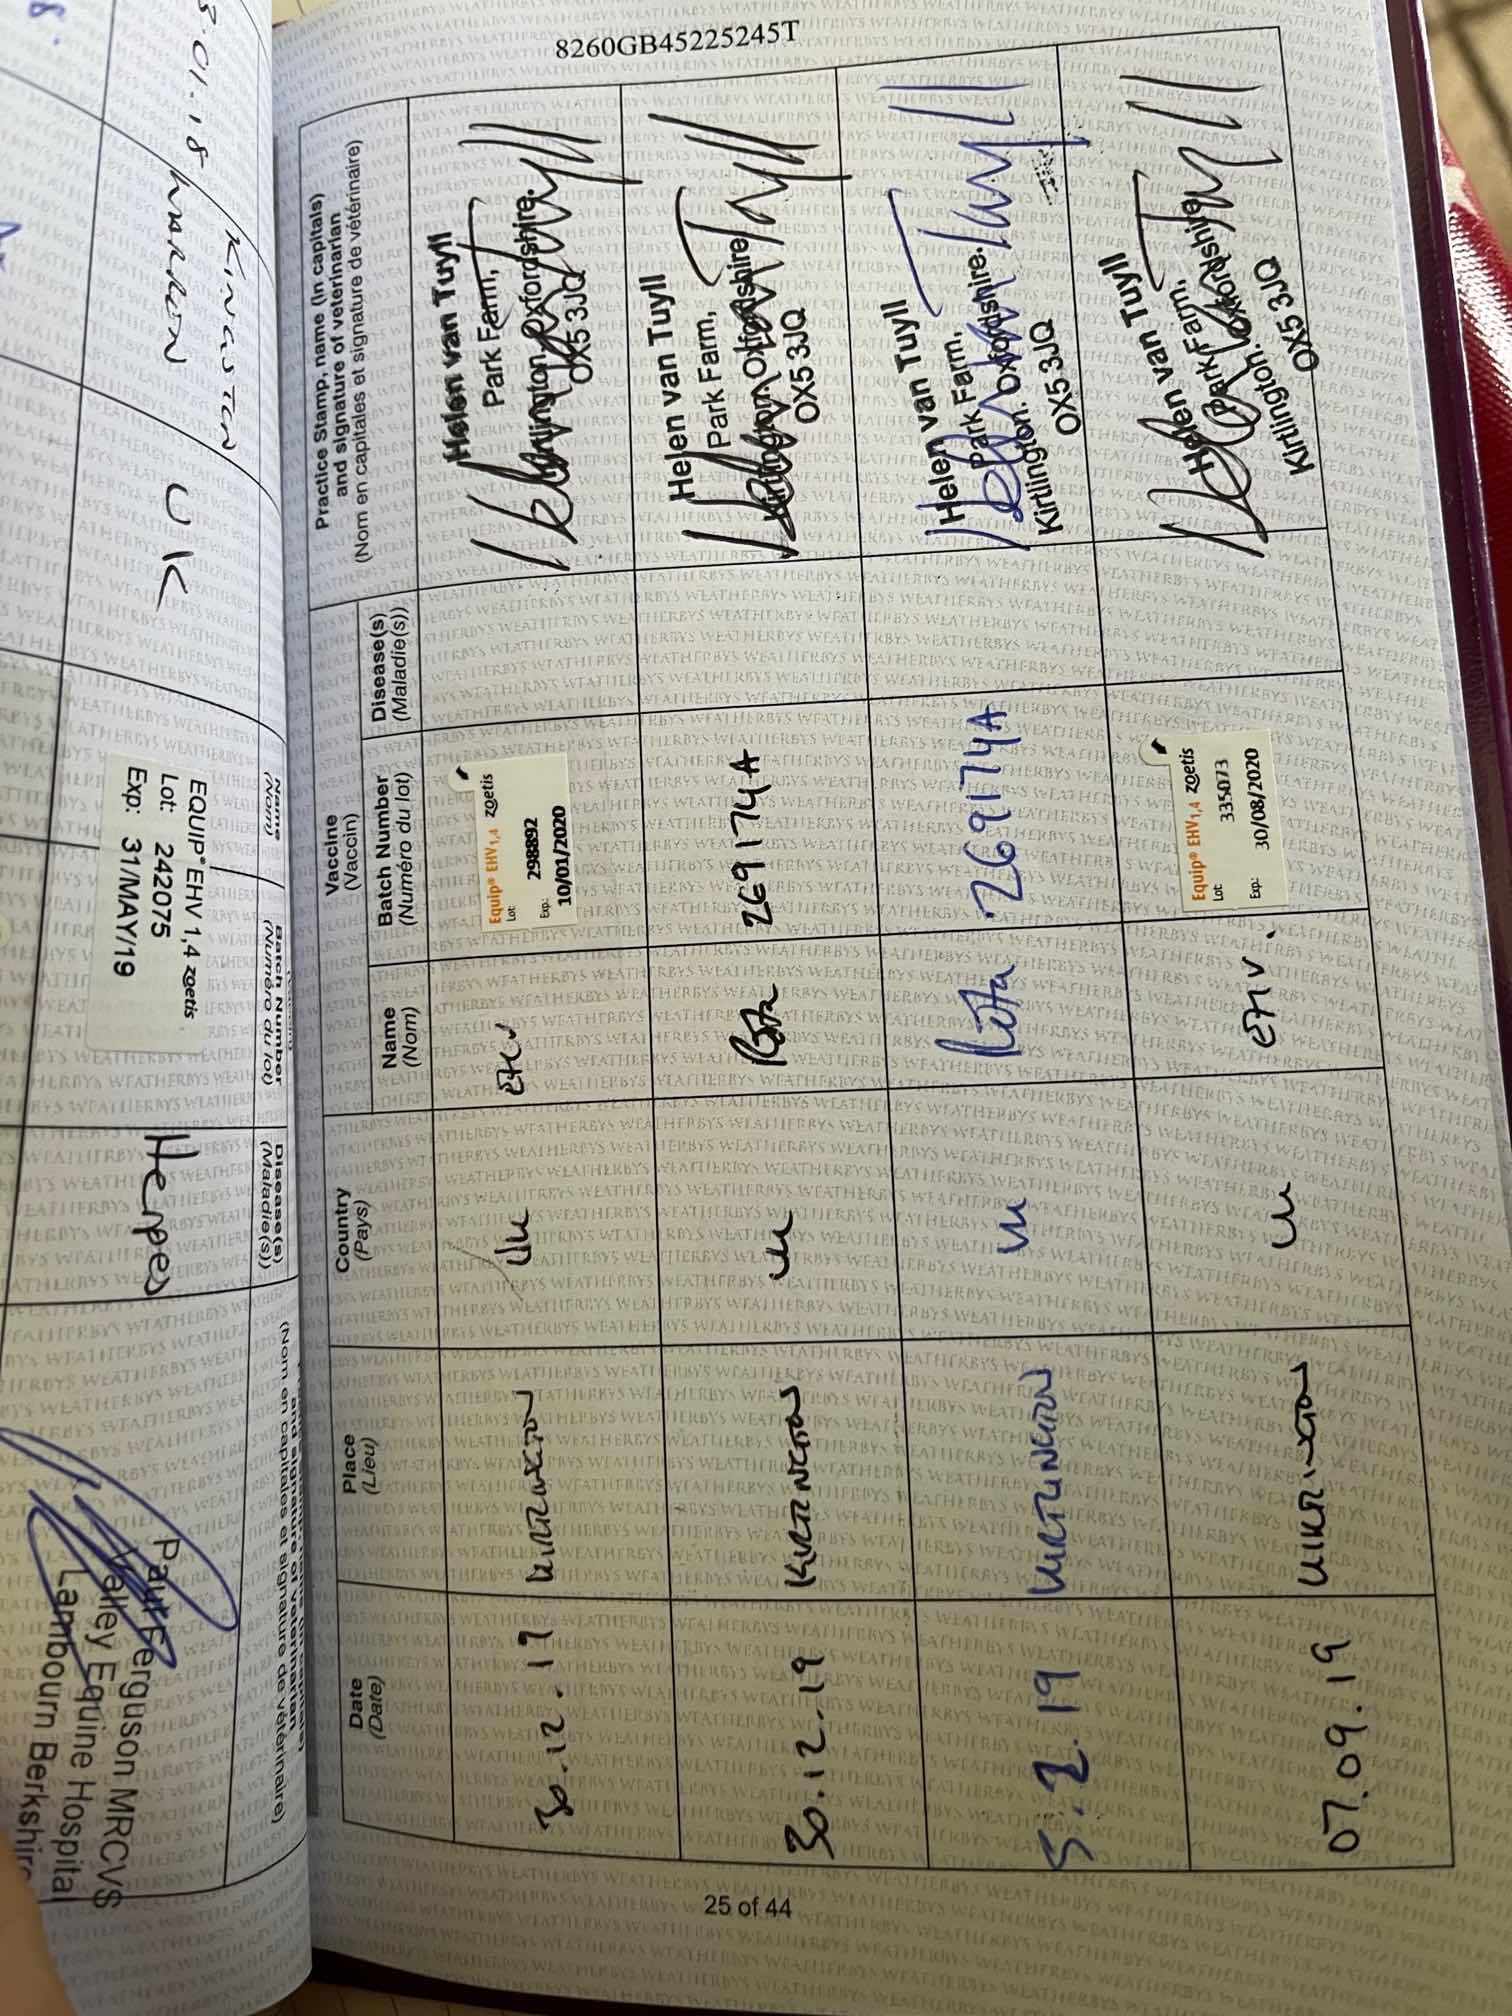 8260GB45225245T
Date
(Date)
Place
(Lieu)
Country
(Pays)
Vaccine
(Vaccin)
Name
(Nom)
Batch Number
(Numéro du lot)
Disease(s)
(Maladie(s))
Practice Stamp, name (in capitals)
and signature of veterinarian
(Nom en capitales et signature de vétérinaire)
30.12.19
UK
EHV
Equip® EHV1,4 zoetis
Lot: 298892
Exp.: 10/01/2020
Helen van Tuyll
Park Farm,
Kirtlington. Oxfordshire.
OX5 3JQ
30.12.19
Kirtlington
UK
Rota
269174A
Helen van Tuyll
Park Farm,
Kirtlington. Oxfordshire
OX5 3JQ
5.2.19
Kirtlington
UK
Rota
269174A
Helen van Tuyll
Park Farm,
Kirtlington. Oxfordshire.
Kirtlington
OX5 3JQ
07.09.19
UK
EHV.
Equip® EHV1,4 zoetis
Lot: 335073
Exp.: 30/08/2020
Helen van Tuyll
Park Farm,
Kirtlington. Oxfordshire
Kirtlington
OX5 3JQ
25 of 44
.01.18
Kingston
Warren
UK
Name
(Nom)
Batch Number
(Numéro du lot)
Disease(s)
(Maladie(s))
and signature of veterinarian
(Nom en capitales et signature de vétérinaire)
EQUIP® EHV 1,4 zoetis
Lot: 242075
Exp: 31/MAY/19
Herpes
Paul Ferguson MRCVS
Valley Equine Hospital
Lambourn Berkshire
WEATHERBYS WEATHERBYS WEATHERBYS